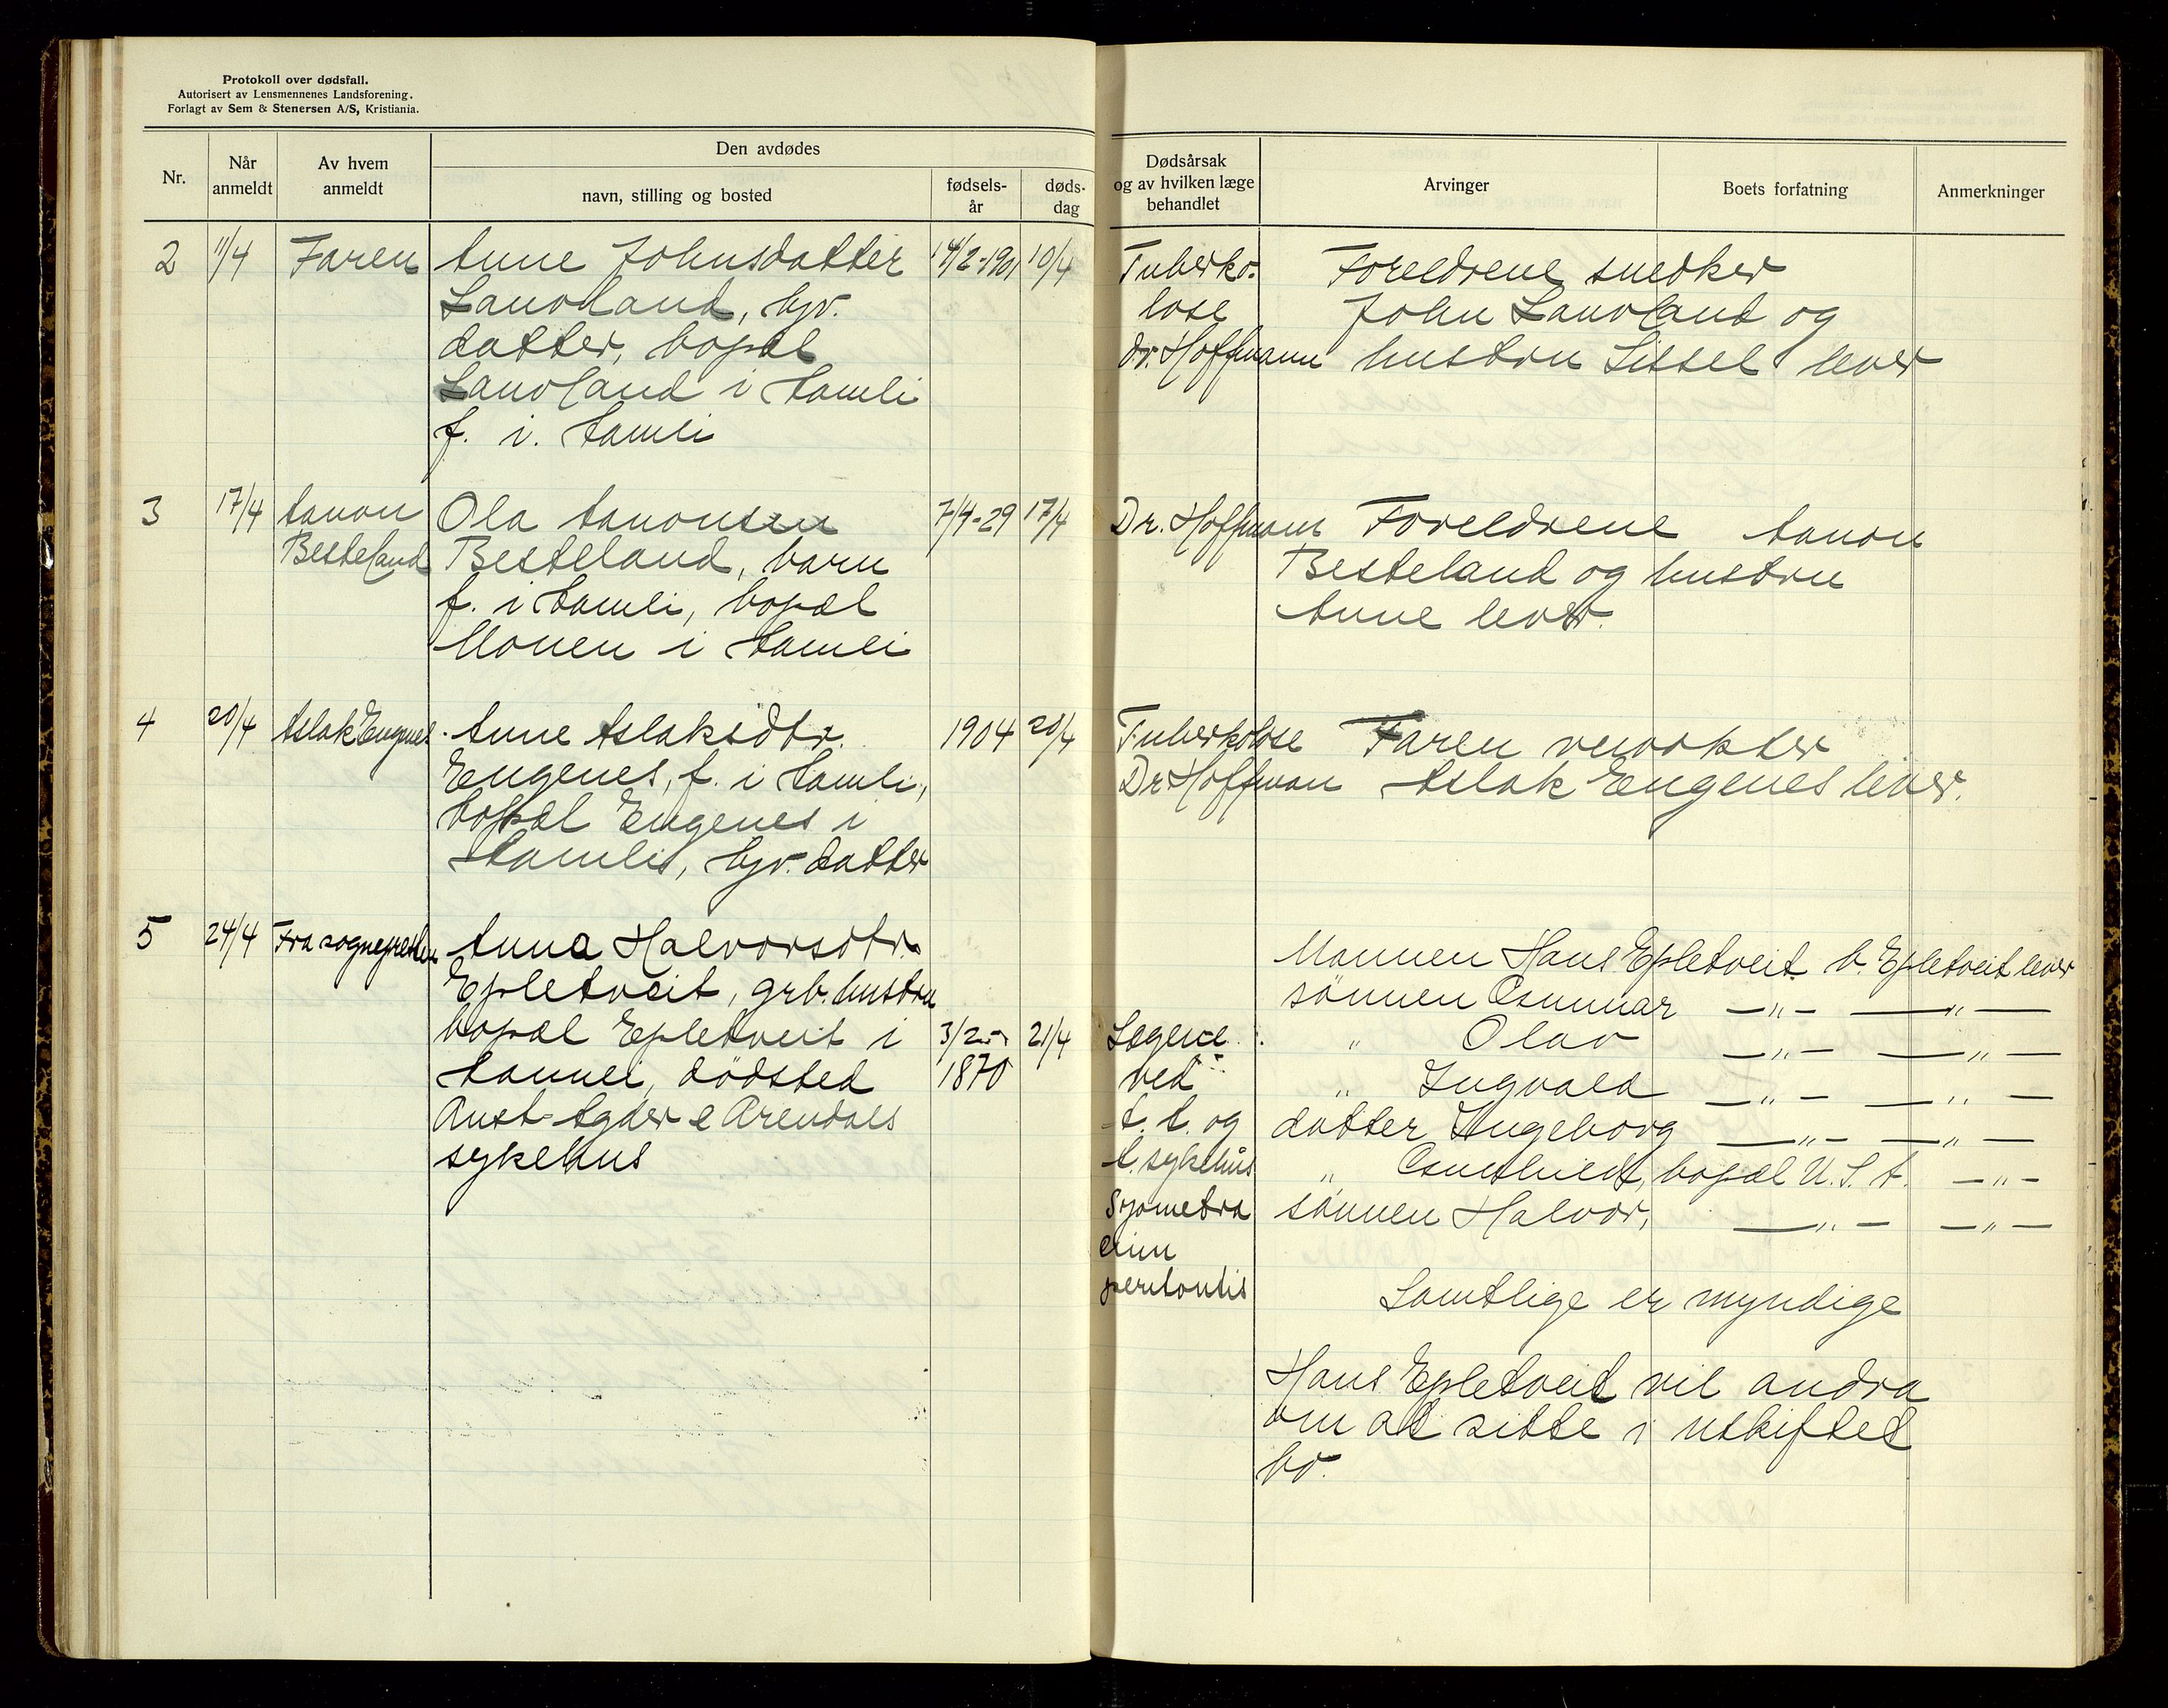 Protokoll over dødsfall.
Autorisert av Lensmennenes Landsforening.
Forlagt av Sem & Stenersen A/S, Kristiania.
Nr.
Når anmeldt
Av hvem anmeldt
Den avdødes
navn, stilling og bosted
fødsels-
år
døds-
dag
Dødsårsak
og av hvilken læge
behandlet
Arvinger
Boets forfatning
Anmerkninger
2 11/4 Faren Anne Johnsdatter 14/2-1901 10/4
Lauvland, hjv.
datter, bopæl
Lauvland i Åamli
f. i. Åamli
Tuberko-
lose
dr. Hoffmann
Foreldrene snedker
John Lauvland og
hustru Sissel lever
3 17/4 Aanon Ola Aanonsen 7/4-29 17/4
Besteland Besteland, barn
f. i Åamli, bopæl
Monen i Åamli
Dr. Hoffmann
Foreldrene Aanon
Besteland og hustru
Anne lever.
4 20/4 Aslak Engenes Anne Aslaksdtr. 1904 20/4
Engenes, f. i Åamli,
bopæl Engenes i
Åamli, hjv. datter
Tuberkolose
Dr Hoffman
Faren
Aslak Engenes lever.
5 24/4 Fra sognepresten Anna Halvorsdtr.
Epletveit, grb. hustru
bopæl Epletveit i 3/2-
Åamli, dødsted 1870 21/4
Aust-Agder e Arendals
sykehus
Lægene
ved
A. A. og
A. sykehus
Pyometra
peritonitis
Mannen Hans Epletveit b. Epletveit lever
sønnen Osmunar —"— —"—
" Olav —"— —"—
" Ingvald —"— —"—
datter Ingeborg —"— —"—
" bopæl U.S.A. —"—
sønnen Halvor, —"— —"—
Samtlige er myndige
Hans Epletveit vil andra
om at sitte i uskiftet
bo.